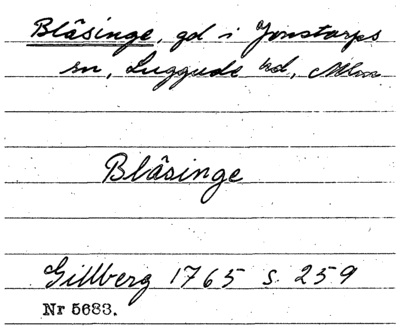 Blåsinge, gd i Jonstorps
sn, Luggude hd, Mlm
Blåsinge
Gillberg 1765 s. 259
Nr 5683.